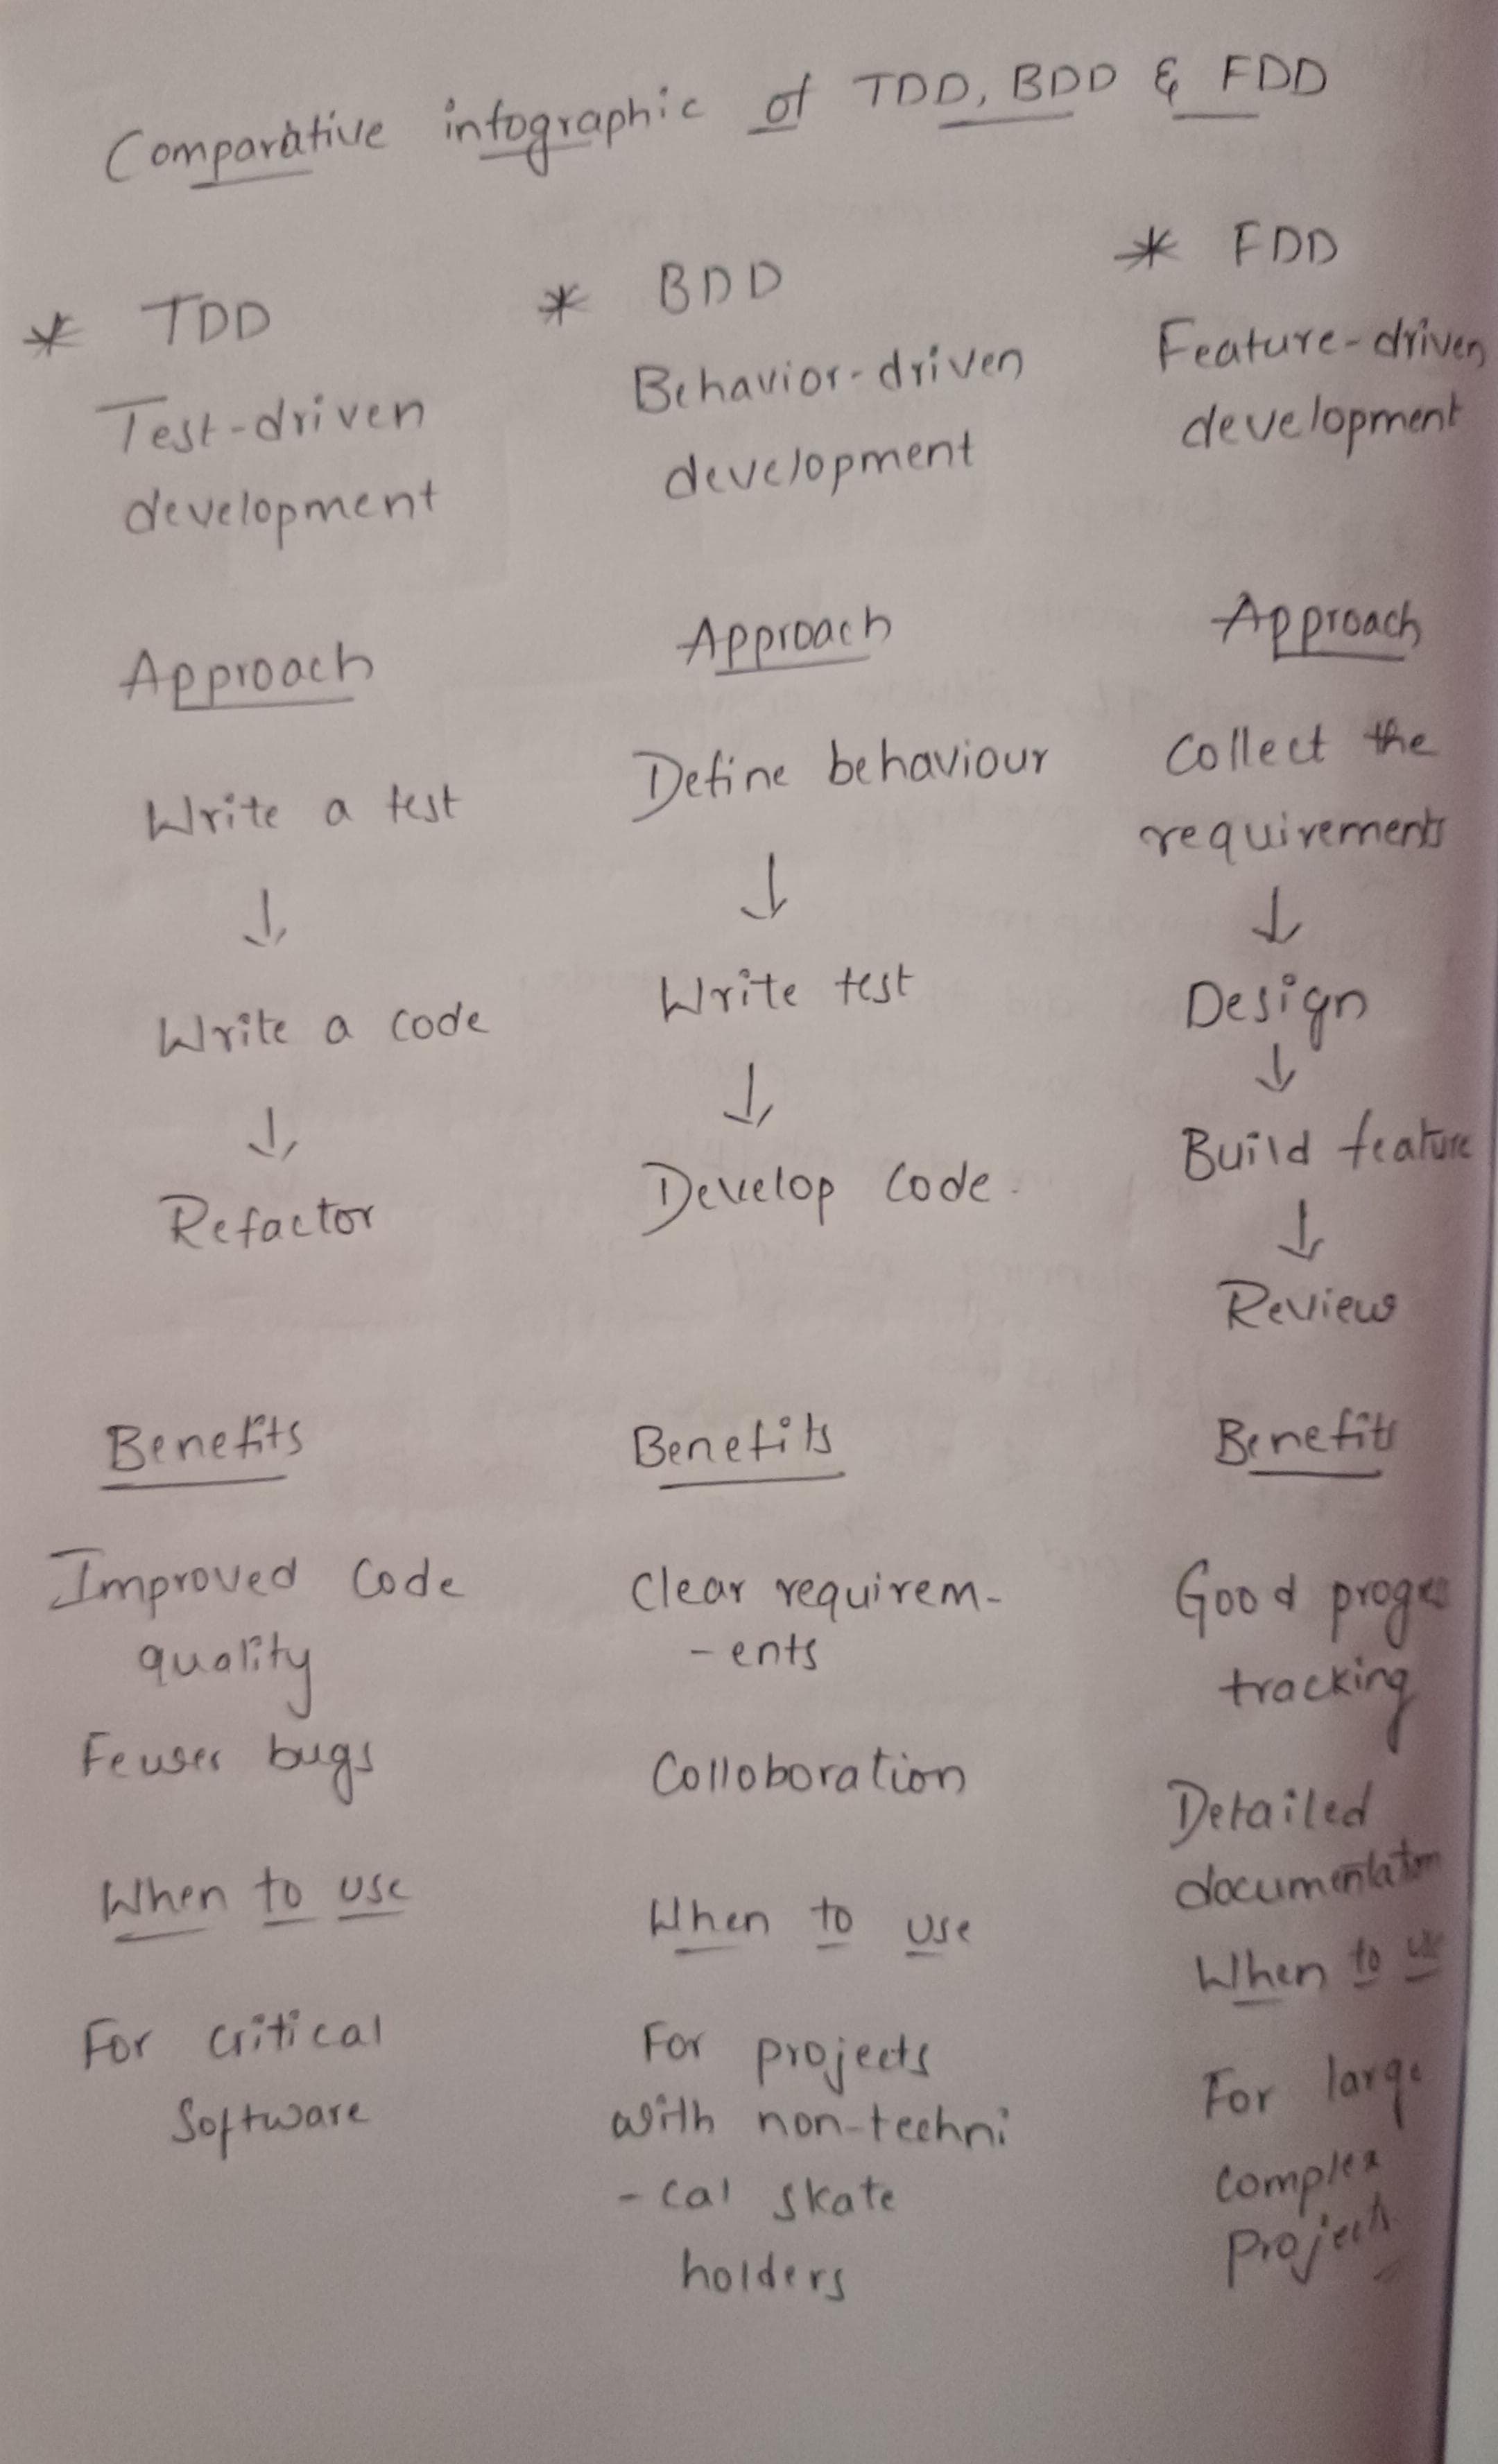 Comparative infographic of TDD, BDD & FDD
* TDD
Test-driven
development
Approach
Write a test
↓
Write a code
↓
Refactor
Benefits
Improved Code
quality
Fewer bugs
When to use
For critical
Software
* BDD
Behavior-driven
development
Approach
Define behaviour
↓
Write test
↓
Develop code.
Benefits
Clear requirem-
-ents
Colloboration
When to use
For projects
with non-techni
-cal skate
holders
* FDD
Feature-driven
development
Approach
Collect the
requirements
↓
Design
↓
Build feature
↓
Review
Benefits
Good
tracking
Detailed
documentation
When to use
For large
complex
projects